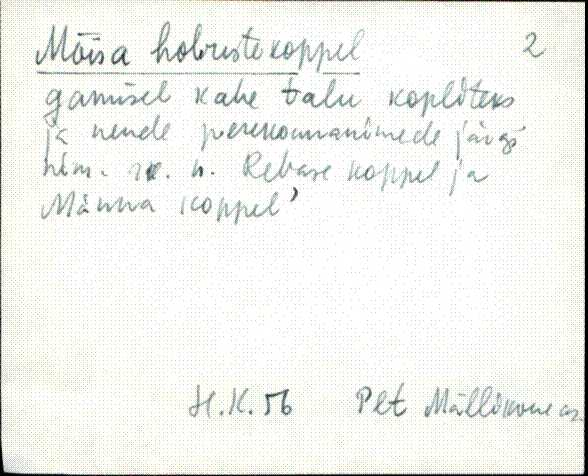 Mõisa hobustekoppel 2
gamisel kahe talu kopliteks
ja nende perekonnanimede järgi
nim. n. n. Rebase koppel ja
Männa koppel’
H.K. 56 Plt Mällikvere as.